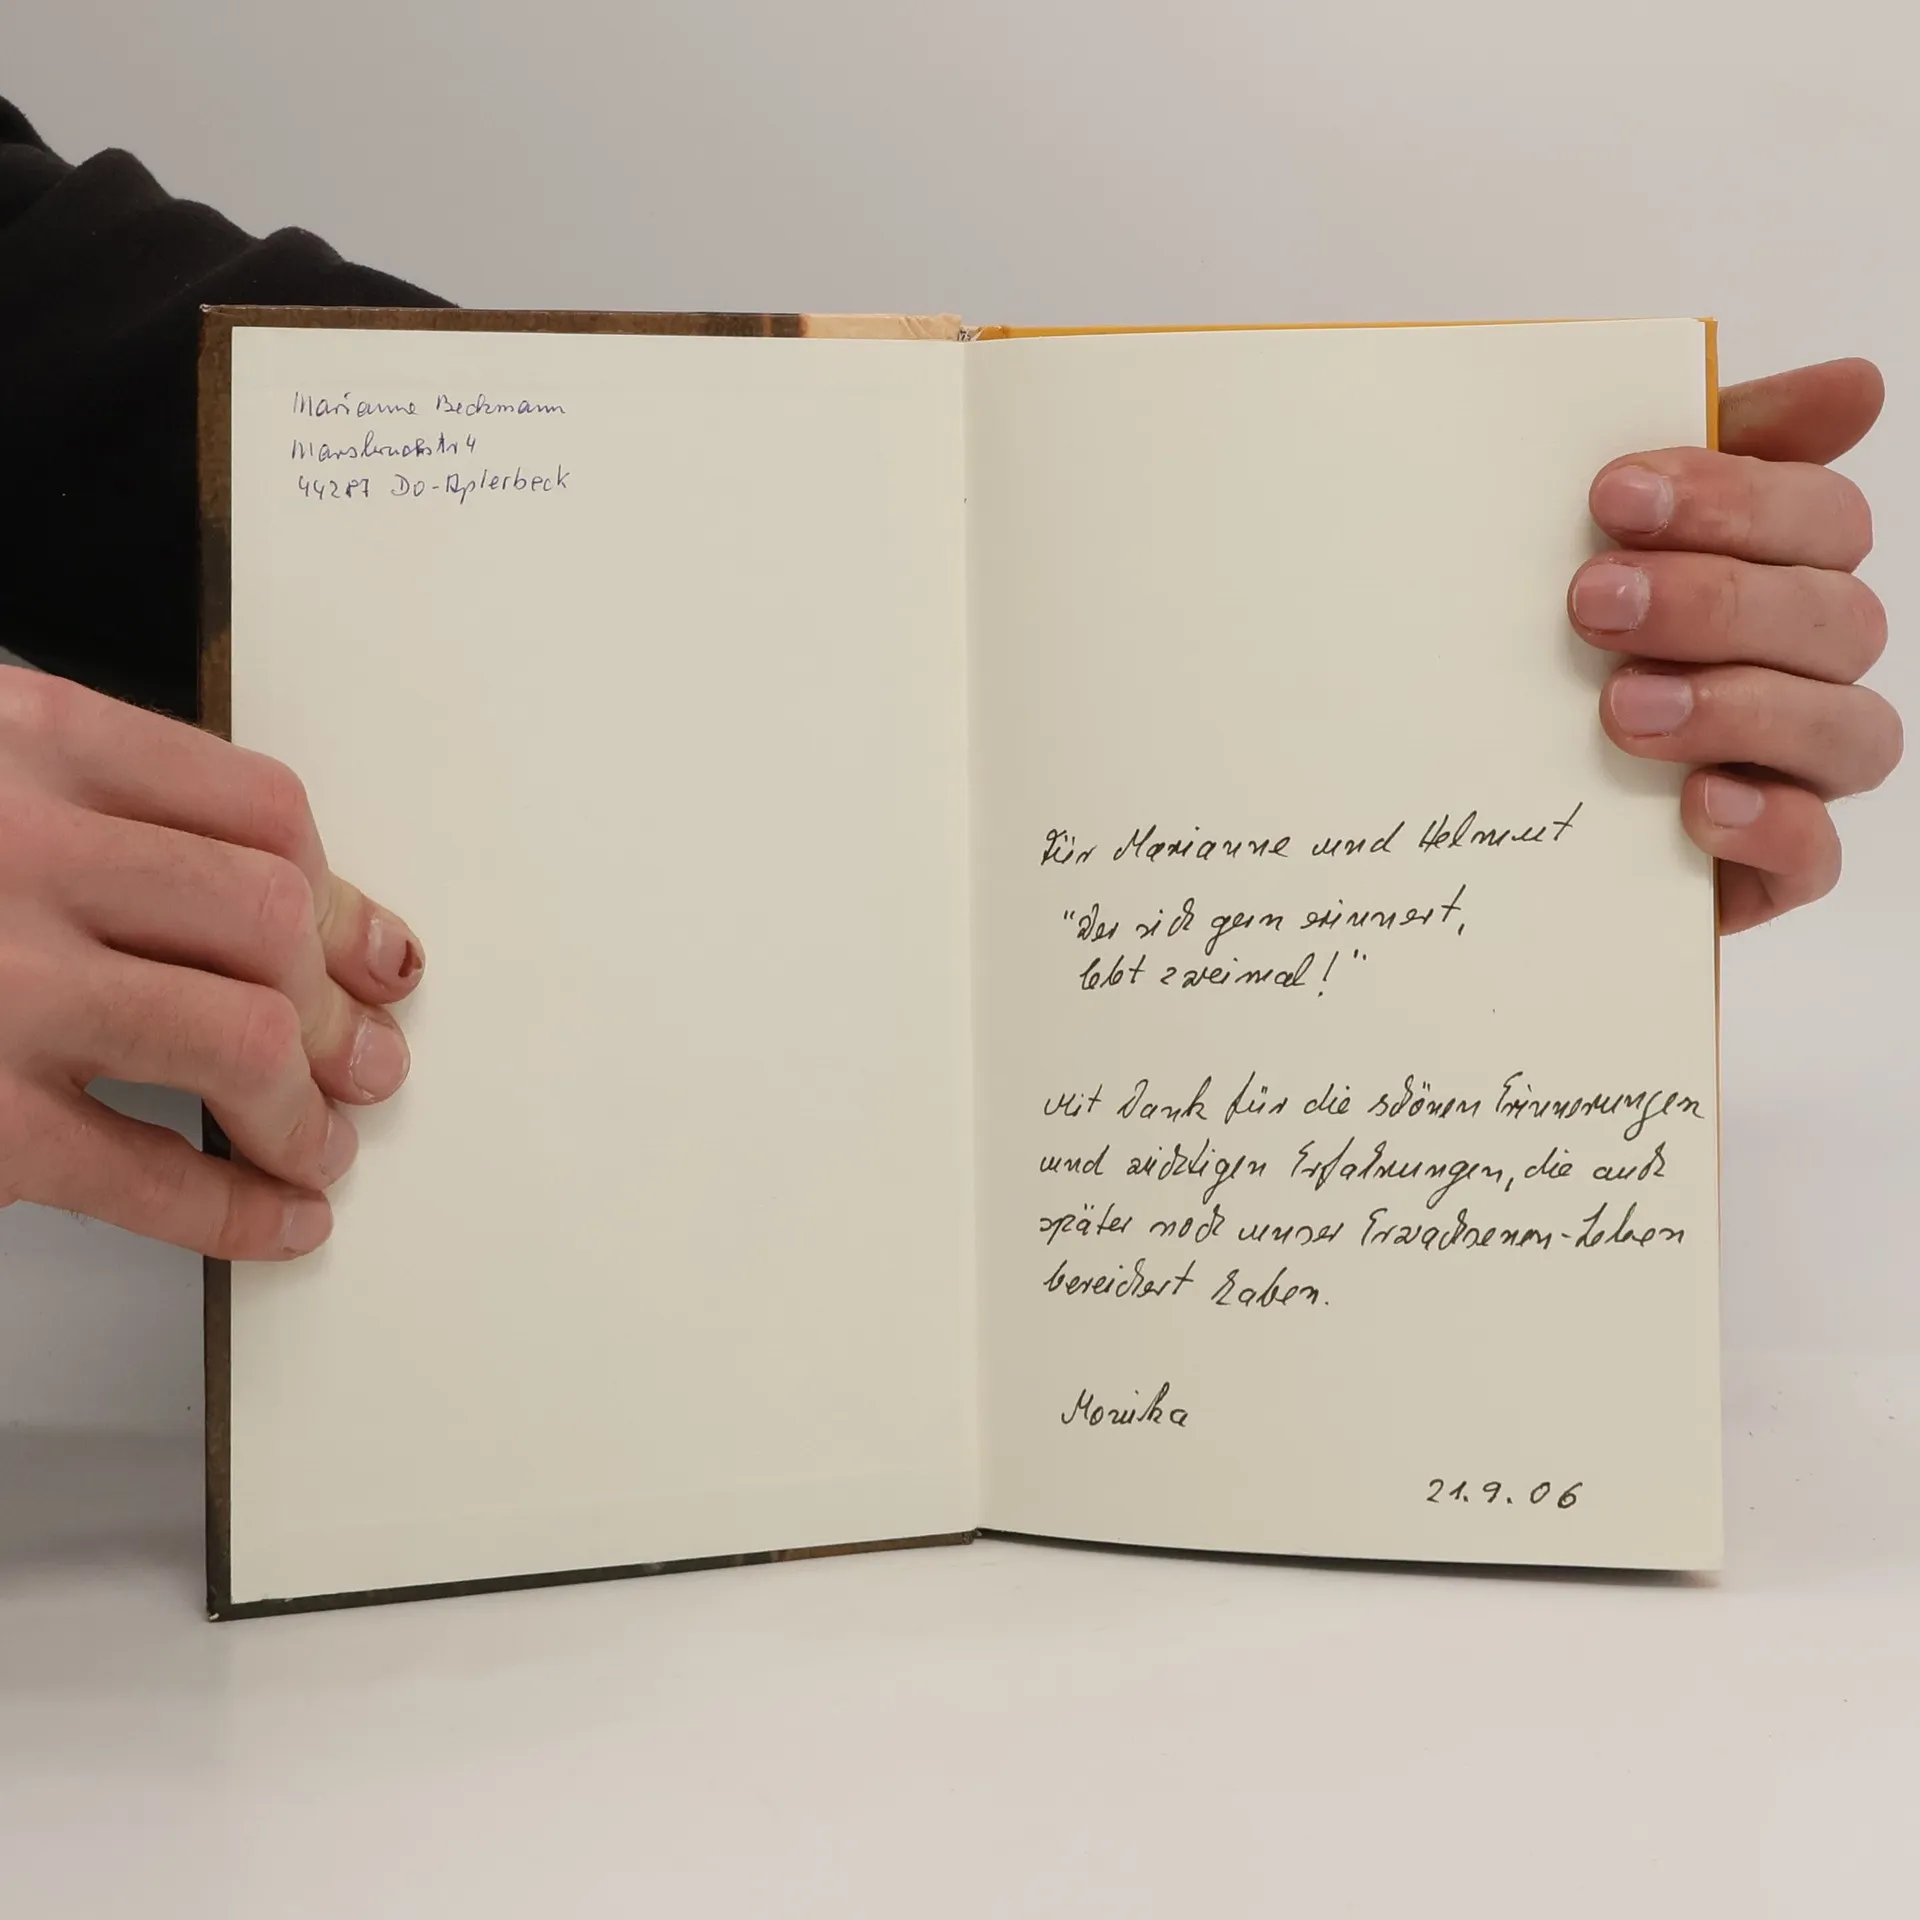 Marianne Beckmann
Marsbruchstr 4
44287 Do-Aplerbeck
Für Marianne und Helmut
"Wer sich gern erinnert,
lebt zweimal!"
Mit Dank für die schönen Erinnerungen
und wichtigen Erfahrungen, die auch
später noch unser Erwachsenen-Leben
bereichert haben.
Monika
21.9.06